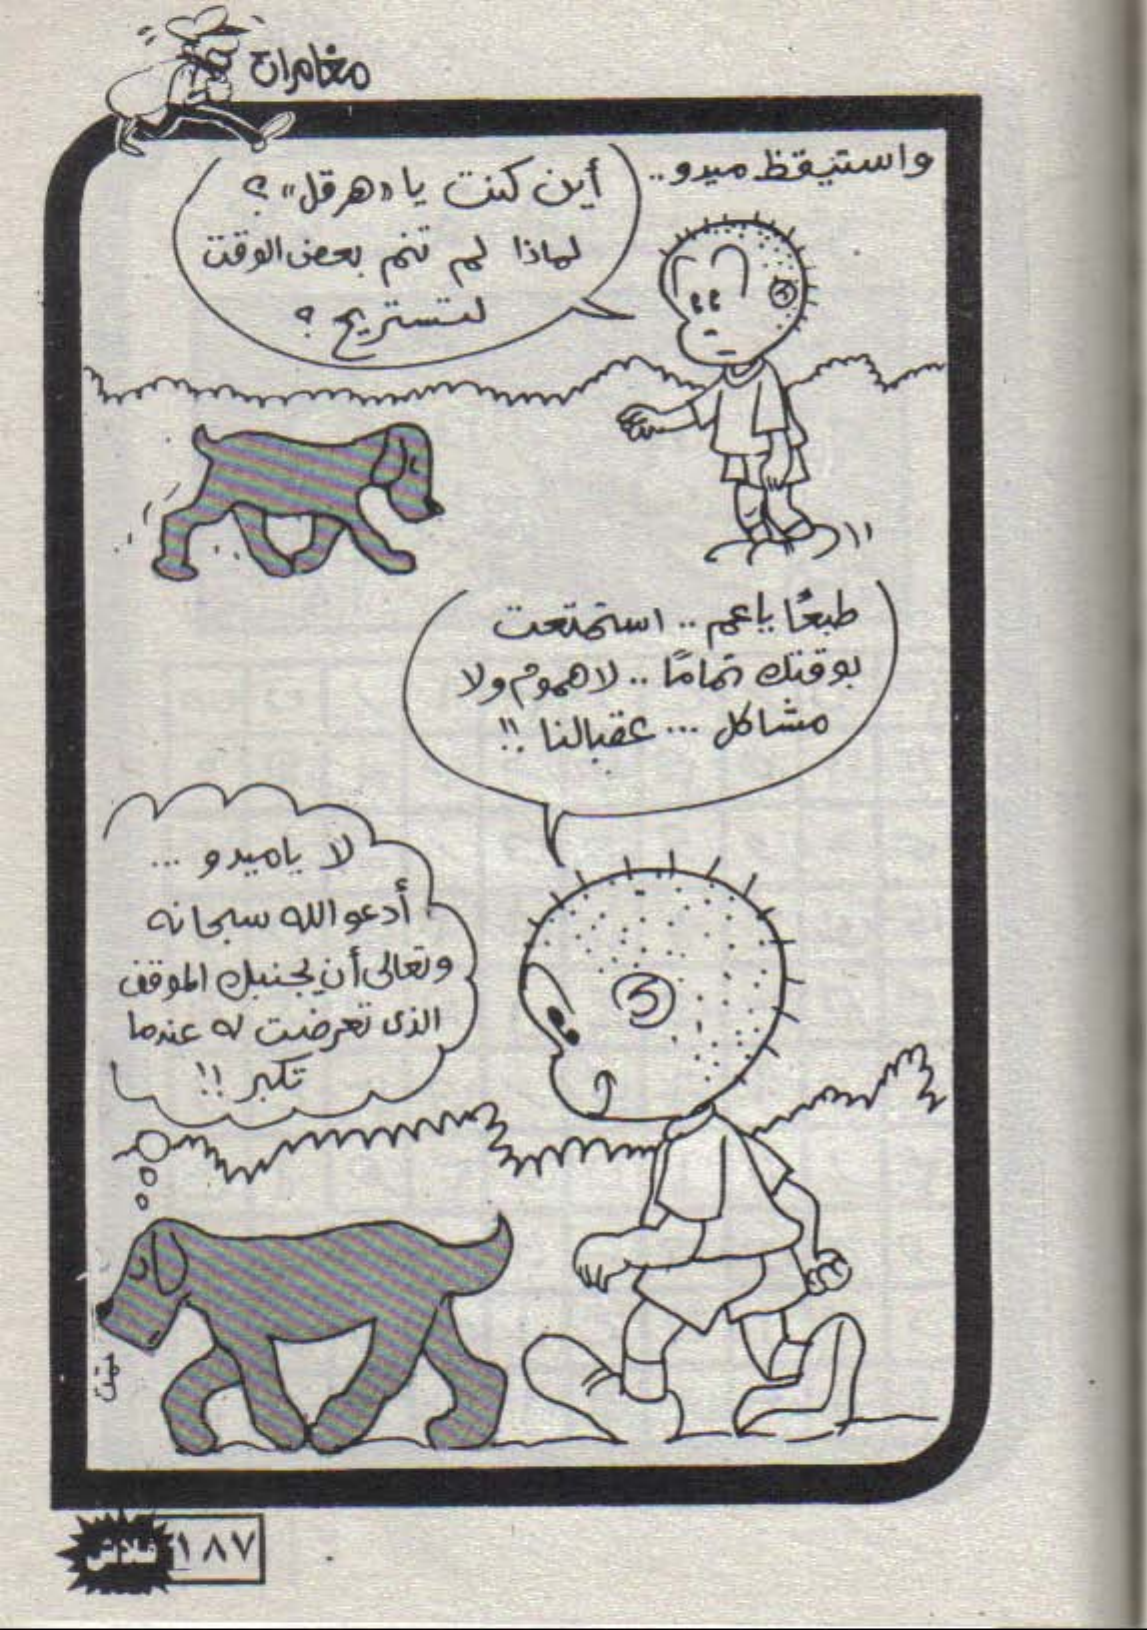 مغامرات
واستيقظ ميدو..
أين كنت يا «هرقل» ؟
لماذا لم تنم بعض الوقت
لتستريح ؟
طبعًا ياعم .. استمتعت
بوقتك تمامًا .. لا هموم ولا
مشاكل ... عقبالنا !!
لا ياميدو ...
أدعو الله سبحانه
وتعالى أن يجنبك الموقف
الذى تعرضت له عندما
تكبر !!
تمت
فلاش ١٨٧